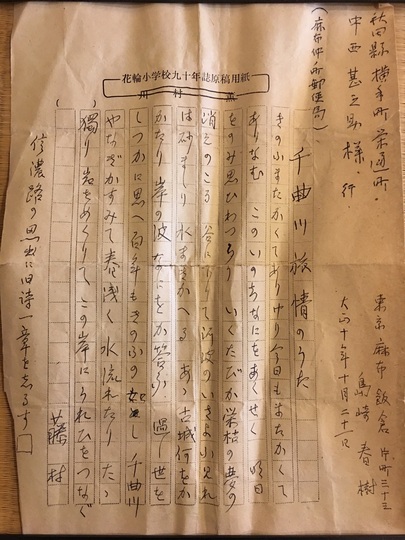 秋田縣 横手町
中西甚
様. 行
東京 麻布 飯倉 片町 三十三
島崎 春樹
大正十年十月二十一日
花輪小学校九十年誌原稿用紙
千曲川旅情のうた
きのふまたかくてありけり今日もまたかくて
ありなむ このいのちなにをあくせく 明日
をのみ思ひわづらう いくたびか栄枯の夢の
消えのこる 谷に下りて 河波のいざよふ見れ
ば 砂まじり 水まきかへる あゝ古城何をか
かたり 岸の波なにをか答ふ 過し世を
しづかに思へ 百年もきのふの如し 千曲川
やなぎかすみて 春浅く水流れたり たゞ
獨り岩をめぐりて この岸にうれひをつなぐ
藤村
信濃路の思出に旧詩一章をしるす